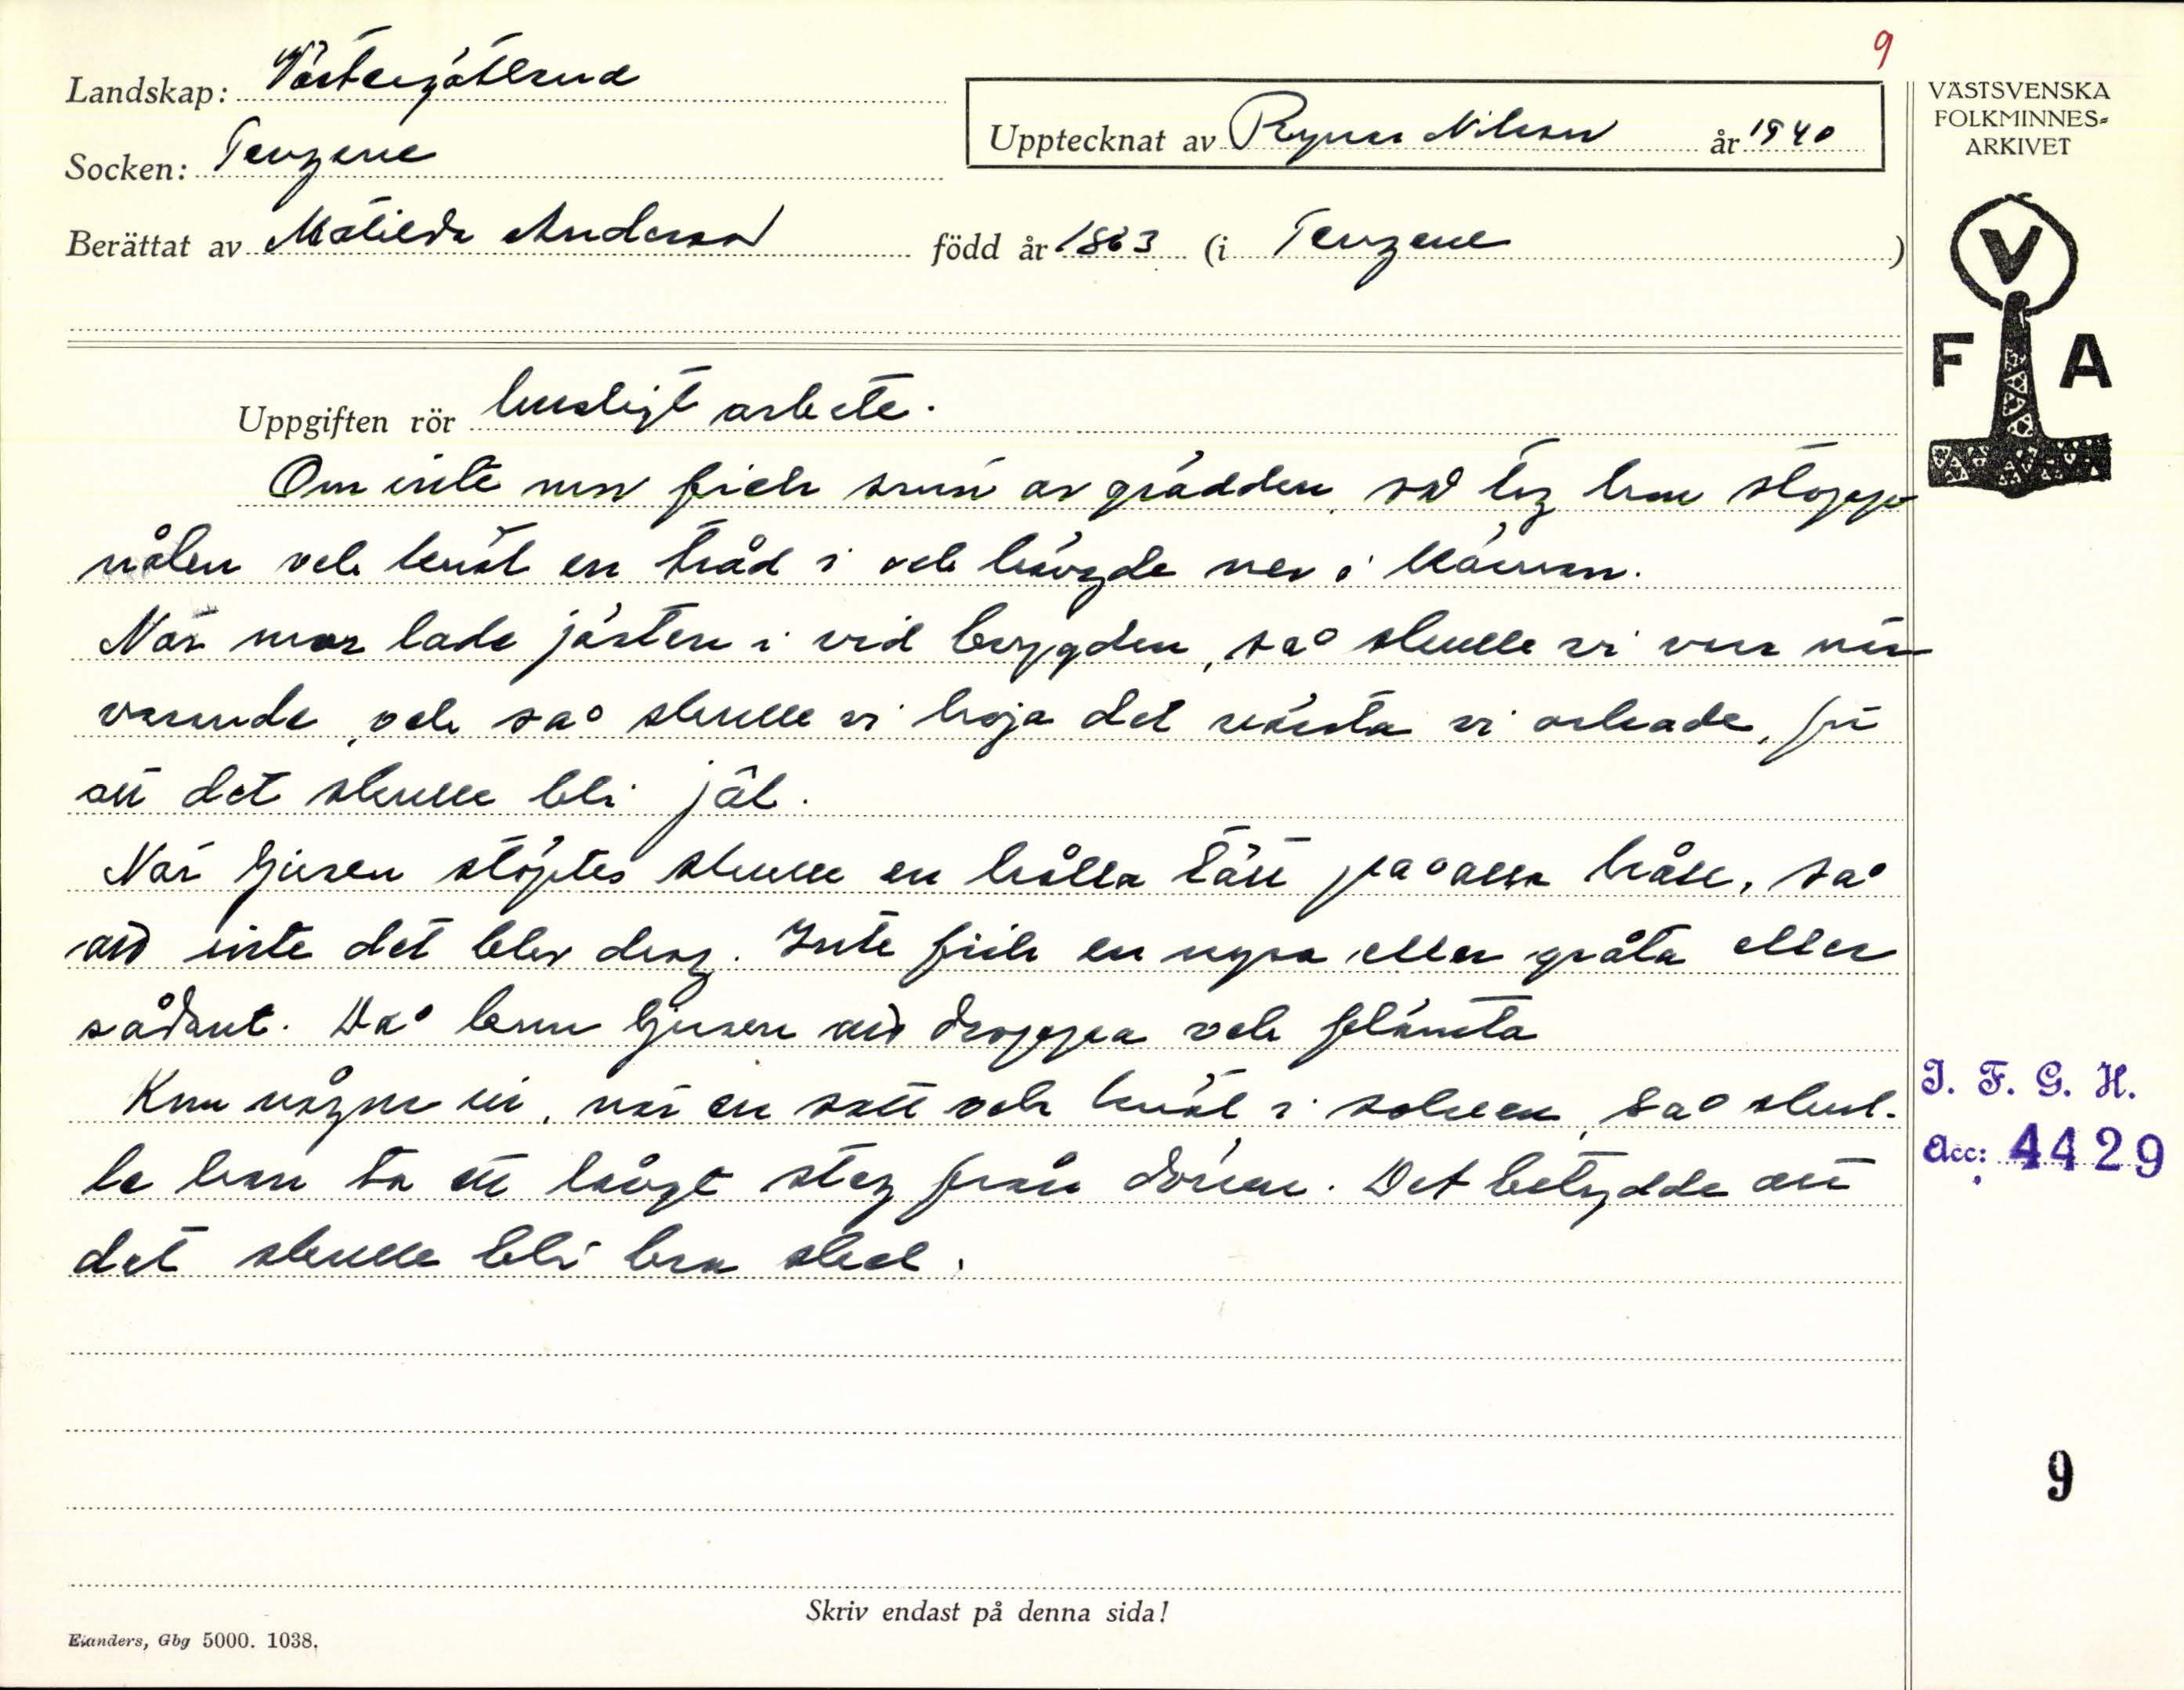 9
Landskap: Västergötland
Socken: Tengene
Upptecknat av Ragnar Nilsson år 1940
Berättat av Matilda Anderson född år 1863 (i Tengene)
VÄSTSVENSKA
FOLKMINNES=
ARKIVET
V
F A
Uppgiften rör husligt arbete.
Om inte mor fick smör av grädden, så tog hon stoppe-
nålen och knöt en tråd i och hängde ner i kärnan.
När mor lade jästen i vid bryggden, så skulle vi vara när-
varande, och så skulle vi hoja det värsta vi orkade, för
att det skulle bli jäl.
När ljusen stöptes skulle en hålla tätt på alla håll, så
att inte det blev drag. Inte fick en nysa eller gråta eller
sådant. Då kom ljusen att droppa och flämta
Kom någon in, när en satt och knöt i solven, så skul-
le han ta ett långt steg från dörren. Det betydde att
det skulle bli bra sked.
I. F. G. H.
Acc: 4429
9
Skriv endast på denna sida!
Elanders, Gbg 5000. 1038.